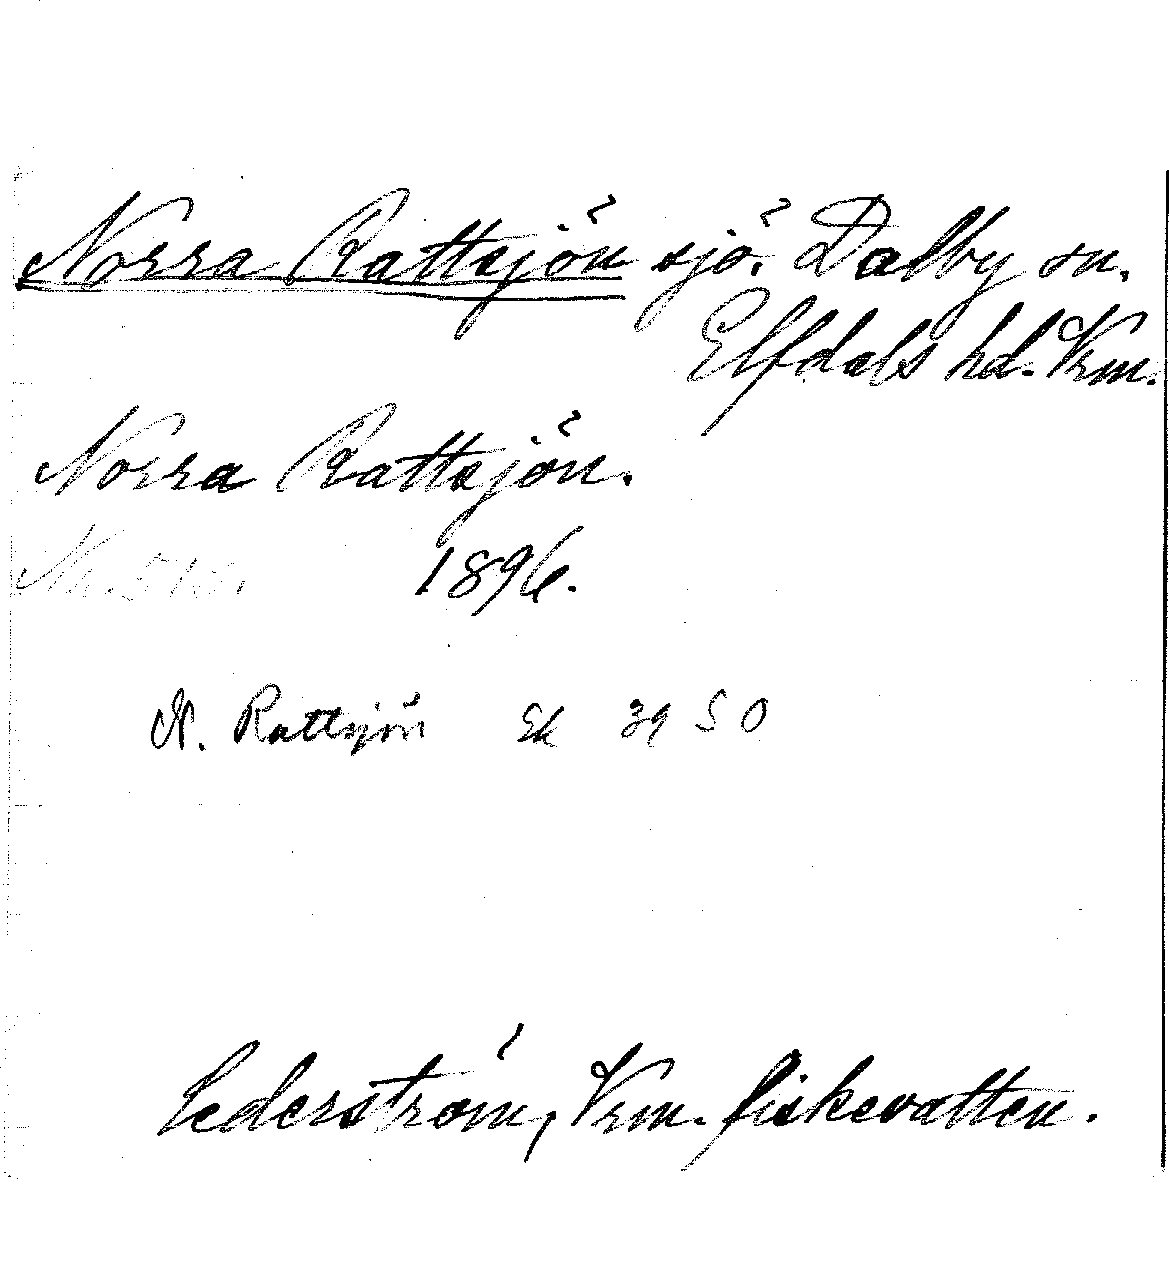 Norra Rattsjön sjö. Dalby sn.
Elfdals hd. Vrm.
Norra Rattsjön.
1896.
N. Rattsjön Ek 39 50
Cederström, Vrm. fiskevatten.